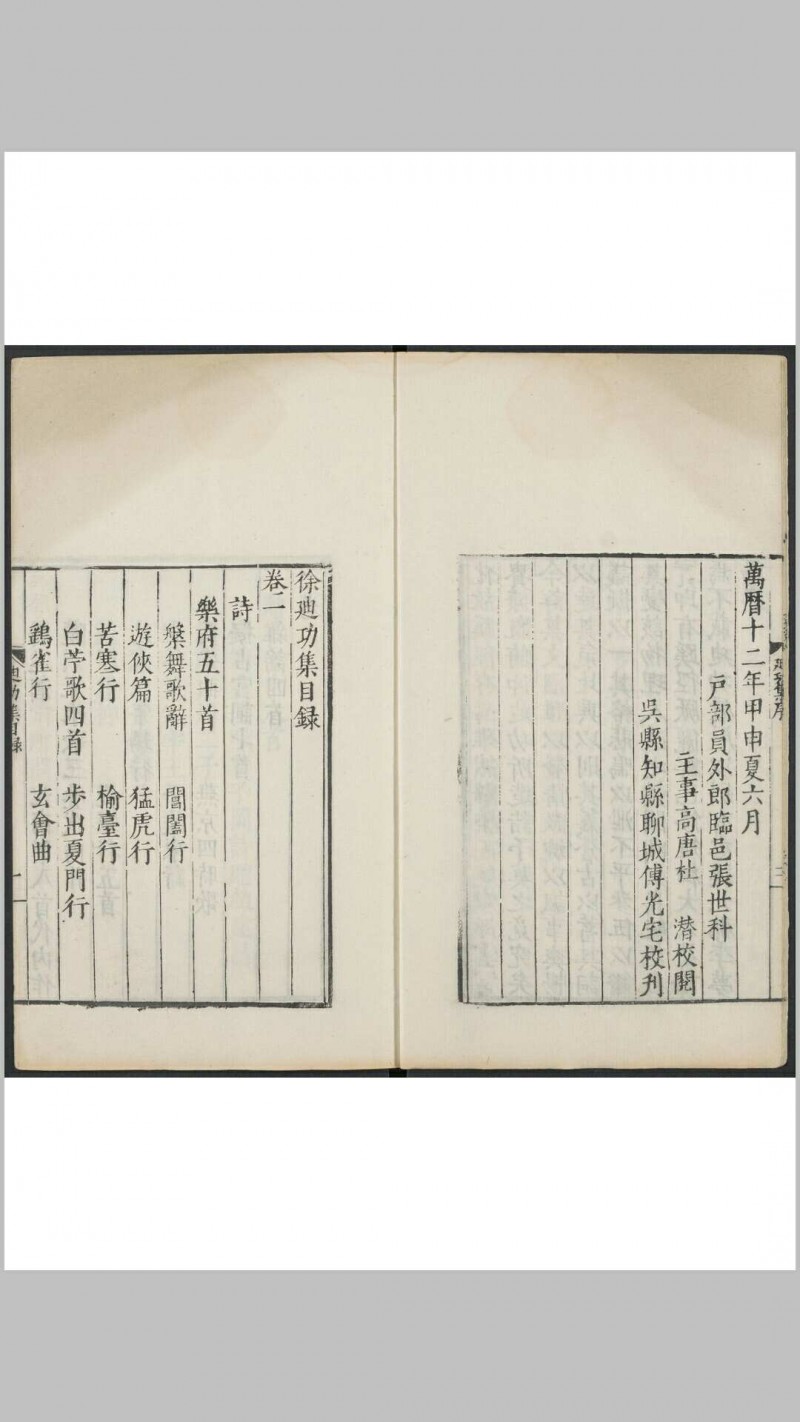 萬曆十二年甲申夏六月
戶部員外郎臨邑張世科
主事高唐杜　潛校閱
吳縣知縣聊城傅光宅校刊
徐迪功集目録
卷二
詩
樂府五十首
槃舞歌辭　閶闔行
遊俠篇　猛虎行
苦寒行　榆臺行
白苧歌四首　步出夏門行
鷄雀行　玄會曲
迪功集目録　一